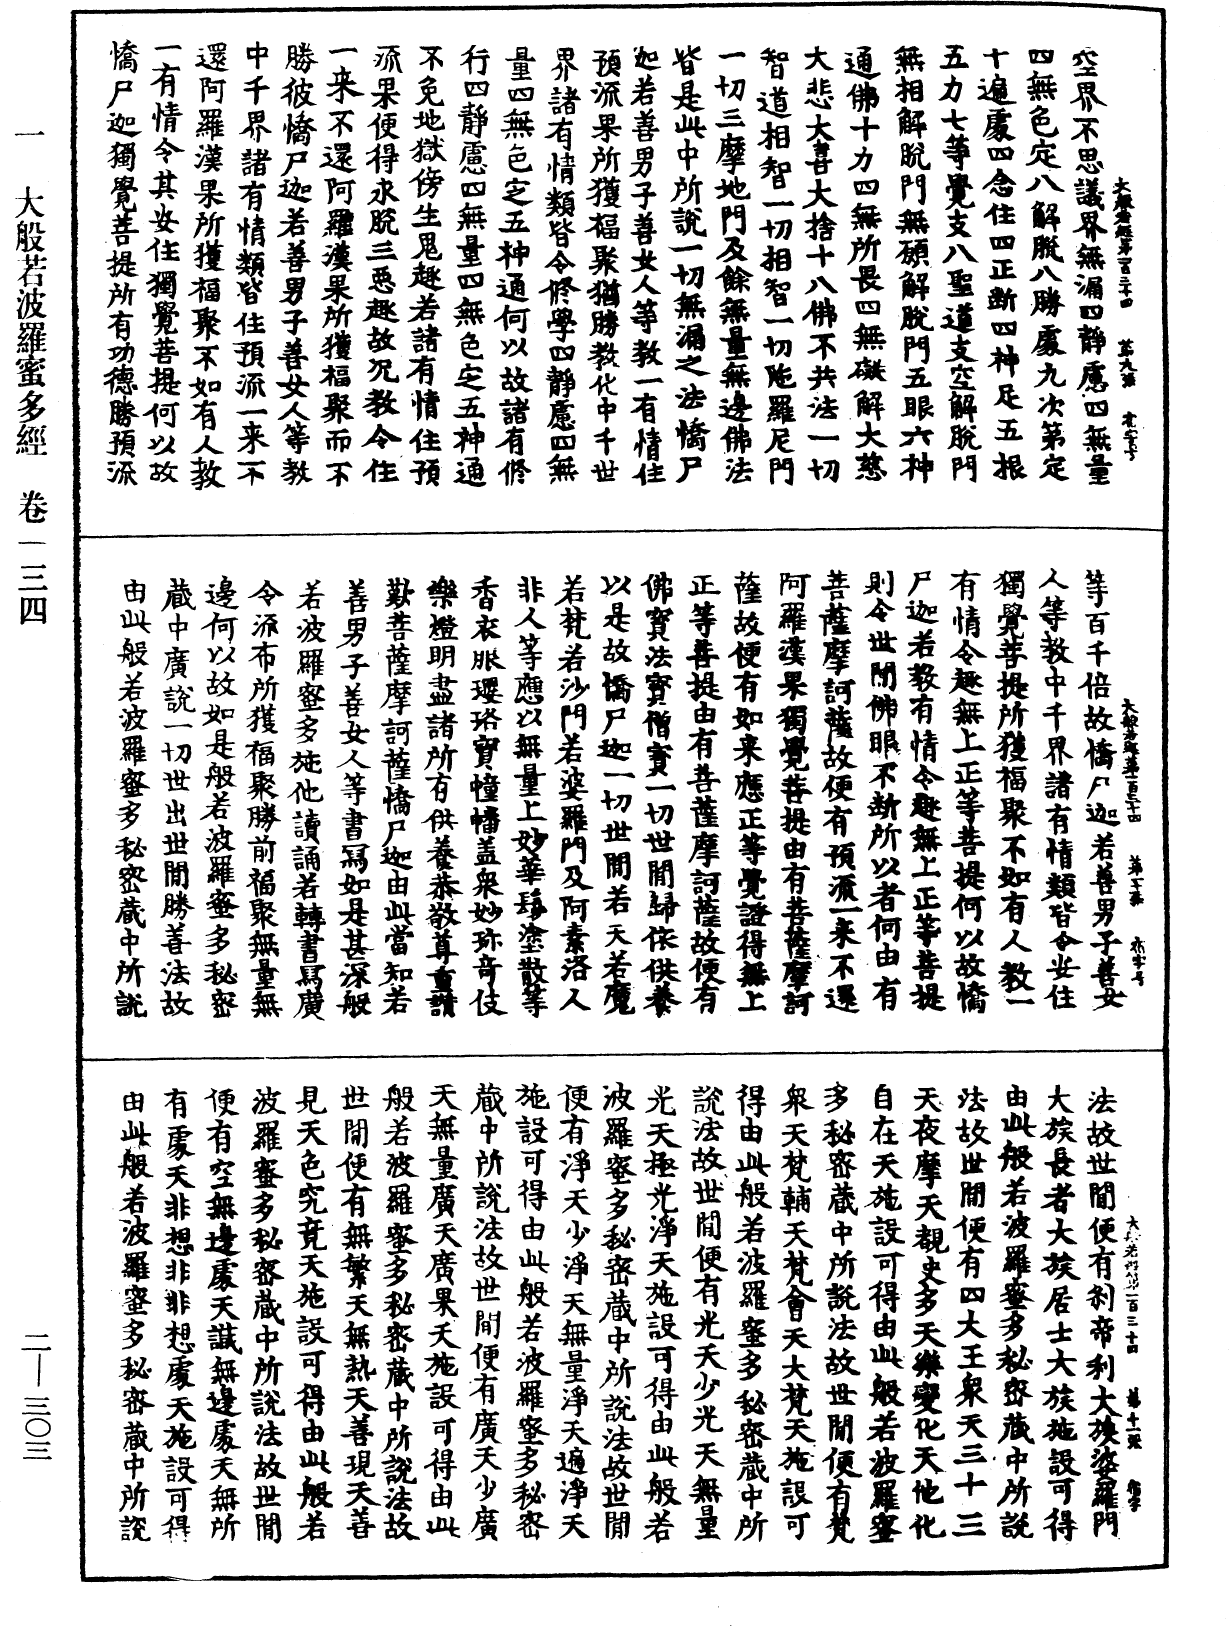 空界不思議界無漏四靜慮四無量
四無色定八解脫八勝處九次第定
十遍處四念住四正斷四神足五根
五力七等覺支八聖道支空解脫門
無相解脫門無願解脫門五眼六神
通佛十力四無所畏四無礙解大慈
大悲大喜大捨十八佛不共法一切
智道相智一切相智一切陁羅尼門
一切三摩地門及餘無量無邊佛法
皆是此中所說一切無漏之法憍尸
迦若善男子善女人等教一有情住
預流果所獲福聚猶勝教化中千世
界諸有情類皆令修學四靜慮四無
量四無色定五神通何以故諸有修
行四靜慮四無量四無色定五神通
不免地獄傍生鬼趣若諸有情住預
流果便得永脫三惡趣故況教令住
一來不還阿羅漢果所獲福聚而不
勝彼憍尸迦若善男子善女人等教
中千界諸有情類皆住預流一來不
還阿羅漢果所獲福聚不如有人教
一有情令其安住獨覺菩提何以故
憍尸迦獨覺菩提所有功德勝預流
大般若經第一百三十四 第九張
等百千倍故憍尸迦若善男子善女
人等教中千界諸有情類皆令安住
獨覺菩提所獲福聚不如有人教一
有情令趣無上正等菩提何以故憍
尸迦若教有情令趣無上正等菩提
則令世間佛眼不斷所以者何由有
菩薩摩訶薩故便有預流一來不還
阿羅漢果獨覺菩提由有菩薩摩訶
薩故便有如來應正等覺證得無上
正等菩提由有菩薩摩訶薩故便有
佛寶法寶僧寶一切世間歸依供養
以是故憍尸迦一切世間若天若魔
若梵若沙門若婆羅門及阿素洛人
非人等應以無量上妙華鬘塗散等
香衣服瓔珞寶幢幡盖衆妙珎奇伎
樂燈明盡諸所有供養恭敬尊重讚
歎菩薩摩訶薩憍尸迦由此當知若
善男子善女人等書寫如是甚深般
若波羅蜜多施他讀誦若轉書寫廣
令流布所獲福聚勝前福聚無量無
邊何以故如是般若波羅蜜多秘密
藏中廣說一切世出世間勝善法故
由此般若波羅蜜多秘密藏中所說
大般若經第一百三十四 第十張
法故世間便有刹帝利大族婆羅門
大族長者大族居士大族施設可得
由此般若波羅蜜多秘密藏中所說
法故世間便有四大王衆天三十三
天夜摩天覩史多天樂變化天他化
自在天施設可得由此般若波羅蜜
多秘密藏中所說法故世間便有梵
衆天梵輔天梵會天大梵天施設可
得由此般若波羅蜜多秘密藏中所
說法故世間便有光天少光天無量
光天極光淨天施設可得由此般若
波羅蜜多秘密藏中所說法故世間
便有淨天少淨天無量淨天遍淨天
施設可得由此般若波羅蜜多秘密
藏中所說法故世間便有廣天少廣
天無量廣天廣果天施設可得由此
般若波羅蜜多秘密藏中所說法故
世間便有無繁天無熱天善現天善
見天色究竟天施設可得由此般若
波羅蜜多秘密藏中所說法故世間
便有空無邊處天識無邊處天無所
有處天非想非非想處天施設可得
由此般若波羅蜜多秘密藏中所說
大般若經第一百三十四 第十一張
一 大般若波羅蜜多經 卷一三四
二—三〇三